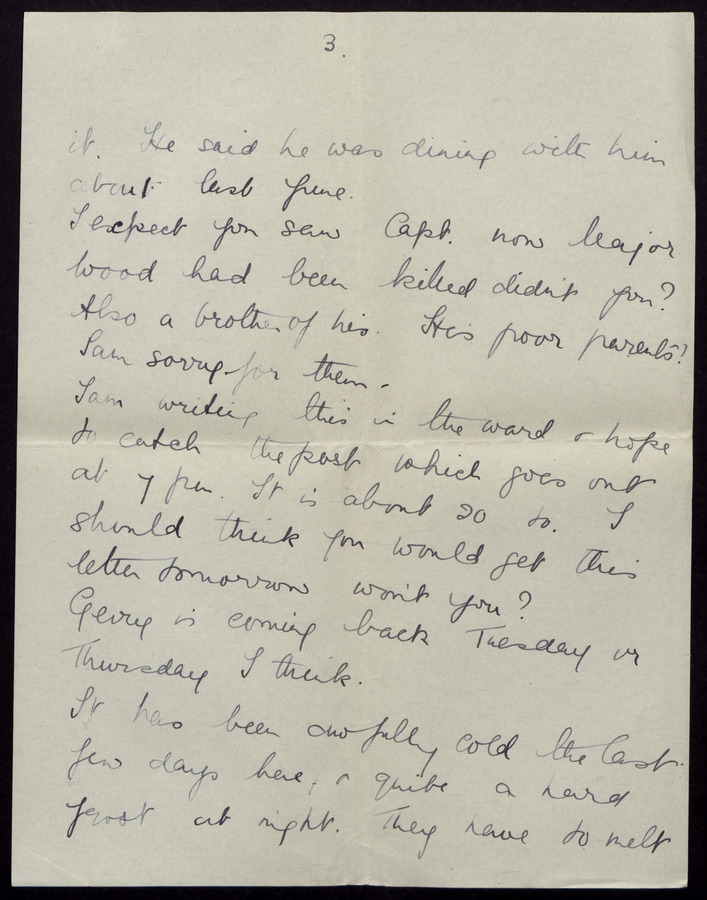 3.
it. He said he was dining with him
about last June.
I expect you saw Capt. now Major
Wood had been killed didn't you?
Also a brother of his. His poor parents!
I am sorry for them.
I am writing this in the ward & hope
to catch the post which goes out
at 7 pm. It is about 20 to. I
should think you would get this
letter tomorrow won't you?
Gerry is coming back Tuesday or
Thursday I think.
It has been awfully cold the last
few days here, & quite a hard
frost at night. They have to melt